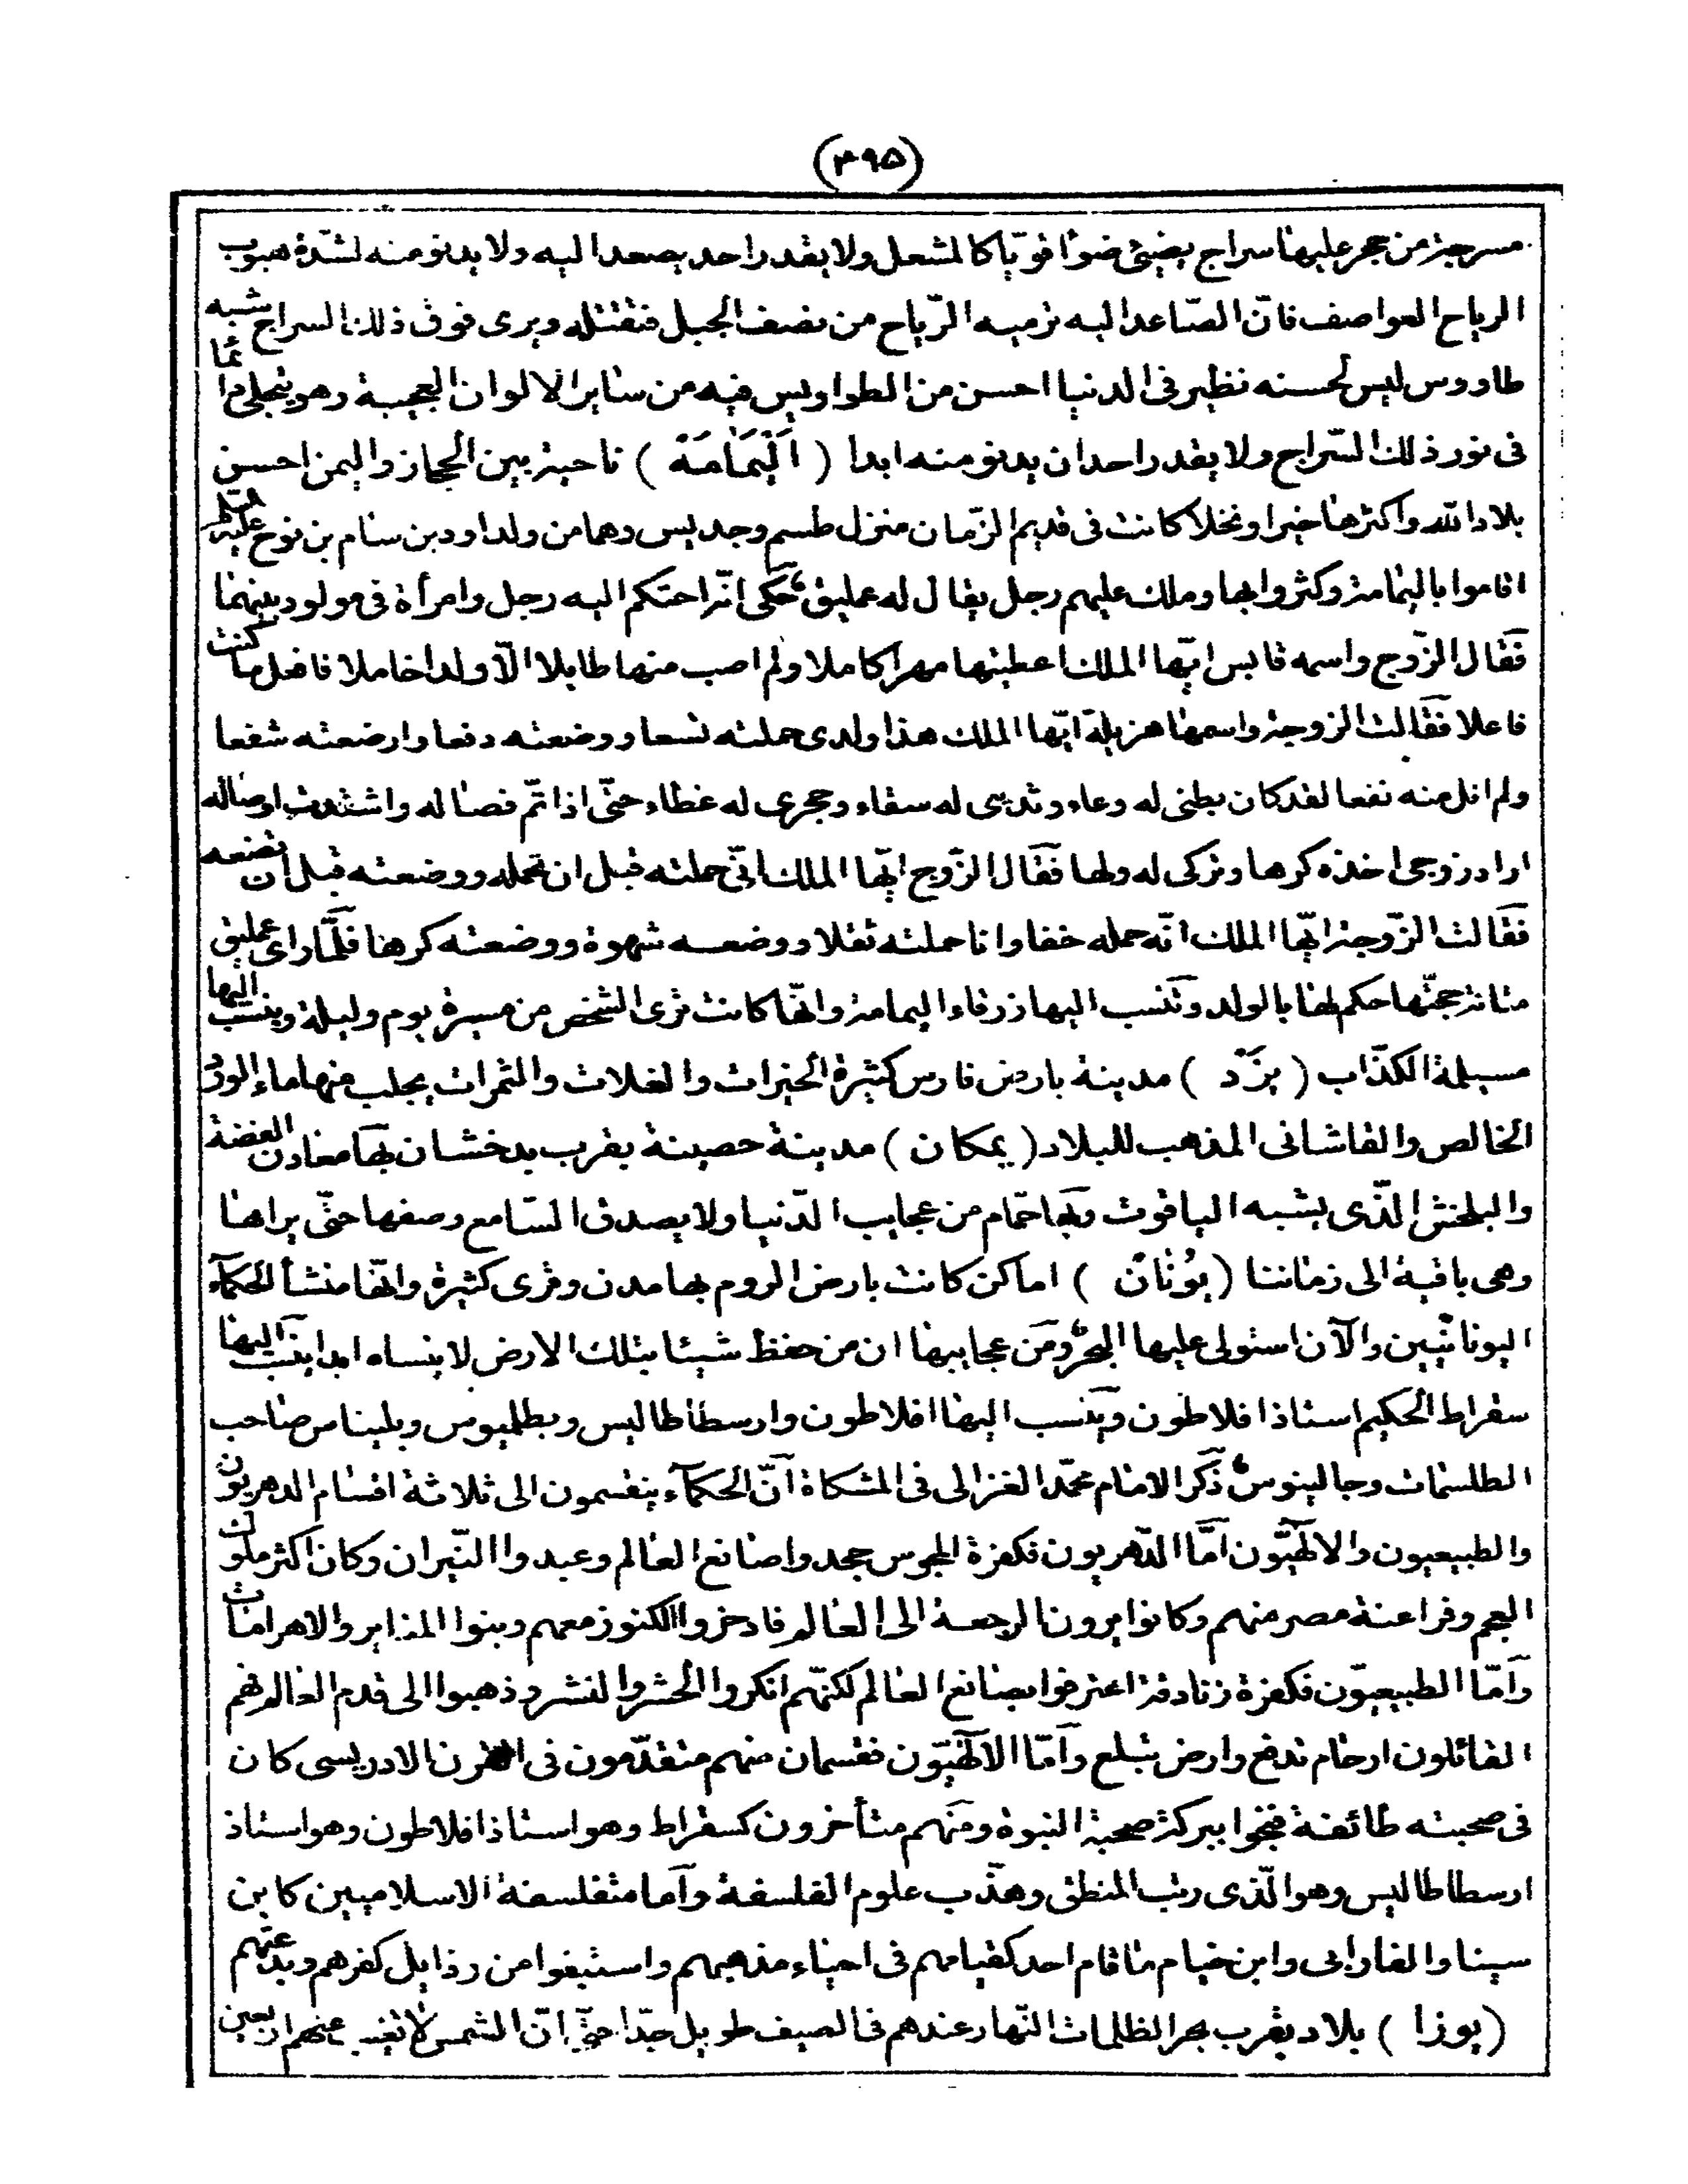 (٣٩٥)
مسرجة من حجر عليها سراج يضيئ ضوأ قويّا كالمشعل ولا يقدر احد يصعد اليه ولا يدنو منه لشدّة هبوب
الرياح العواصف فانّ الصّاعد اليه ترميه الرّياح من نصف الجبل فتقتله ويرى فوق ذلك السراج شبه
طاووس ليس لحسنه نظير فى الدنيا احسن من الطواويس فيه من ساير الالوان العجيبة وهو ينجلى دائما
فى نور ذلك السّراج ولا يقدر احد ان يدنو منه ابدا ( اَلْيَمَامَة ) ناحية بين الحجاز واليمن احسن
بلاد الله واكثرها خيرا ونخلا كانت فى قديم الزّمان منزل طسم وجديس وهما من ولد اود بن سام بن نوح عليه السلام
اقاموا باليمامة وكثروا بها وملك عليهم رجل يقال له عمليق حكى انّه احتكم اليه رجل وامرأة فى مولود بينهما
فقال الزّوج واسمه قابس ايّها الملك اعطيتها مهرا كاملا ولم اصب منها طايلا الّا ولدا خاملا فافعل ما كنت
فاعلا فقالت الزوجة واسمها هزيلة ايّها الملك هذا ولدى حملته تسعا ووضعته دفعا وارضعته شفعا
ولم انل منه نفعا لقد كان بطنى له وعاء وثديى له سقاء وحجرى له غطاء حتّى اذا تمّ فصاله واشتدت اوصاله
اراد زوجى اخذه كرها وتركى له ولها فقال الزّوج ايّها الملك انّى حملته قبل ان تحمله ووضعته قبل ان تضعه
فقالت الزّوجة ايّها الملك انّه حمله خفا وانا حملته ثقلا ووضعه شهوة ووضعته كرها فلمّا راى عمليق
متانة حجّتها حكم لها بالولد وتنسب اليها زرقاء اليمامة وانّها كانت ترى الشخص من مسيرة يوم وليلة وينسب اليها
مسيلمة الكذّاب ( يَزْد ) مدينة بارض فارس كثيرة الخيرات والغلات والثمرات يجلب منها ماء الورد
الخالص والقاشانى المذهب للبلاد ( يمكان ) مدينة حصينة بقرب بدخشان بها معادن الفضة
والبلخش الّذى يشبه الياقوت وبها حمّام من عجايب الدّنيا ولا يصدق السّامع وصفها حتّى يراها
وهى باقية الى زماننا ( يُونَان ) اماكن كانت بارض الروم بها مدن وقرى كثيرة وانّها منشأ الحكمآء
اليونانيّين والآن استولى عليها البحر ومن عجايبها ان من حفظ شيئا بتلك الارض لا ينساه ابدا ينسب اليها
سقراط الحكيم استاذ افلاطون وينسب اليها افلاطون وارسطاطاليس وبطلميوس وبليناس صاحب
الطلسمات وجالينوس ذكر الامام محمّد الغزالى فى المشكاة انّ الحكمآء ينقسمون الى ثلاثة اقسام الدهريون
والطبيعيون والالهيّون امّا الدّهريون فكفرة المجوس جحدوا صانع العالم وعبدوا النّيران وكان اكثر ملوك
العجم وفراعنة مصر منهم وكانوا يرون الرجعة الى العالم فادخروا الكنوز معهم وبنوا المذابر والاهرامات
وامّا الطبيعيّون فكفرة زنادقة اعترفوا بصانع العالم لكنّهم انكروا الحشر والنشر وذهبوا الى قدم العالم فهم
القائلون ارحام تدفع وارض تبلع وامّا الالهيّون فقسمان منهم متقدّمون فى القرن الادريسى كان
فى صحبته طائفة فنجوا ببركة صحبة النبوة ومنهم متأخرون كسقراط وهو استاذ افلاطون وهو استاذ
ارسطاطاليس وهو الّذى رتب المنطق وهذّب علوم الفلسفة وامّا متفلسفة الاسلاميين كابن
سينا والفارابى وابن خيام ما قام احد كقيامهم فى احياء مذهبهم واستبقوا من رذايل كفرهم وبدعتهم
( يوزا ) بلاد بقرب بحر الظلمات النّهار عندهم فى الصيف طويل جدّا حتّى انّ الشمس لا تغيب عنهم اربعين